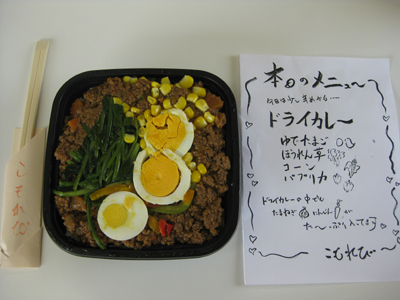 こもれび
本日のメニュー
ドライカレー
ゆでたまご
ほうれん草
コーン
パプリカ
ドライカレーの中にも
たまねぎ
た〜ぷり入ってます
こもれび